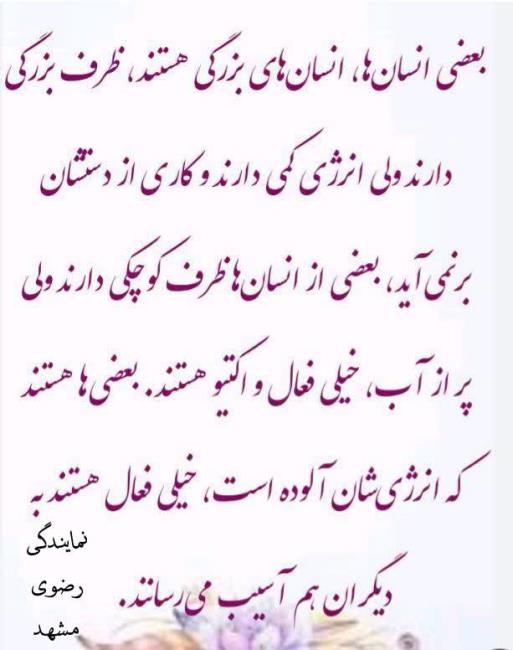 بعضی انسان‌ها، انسان‌های بزرگی هستند، ظرف بزرگی
دارند ولی انرژی کمی دارند و کاری از دستشان
برنمی‌آید، بعضی از انسان‌ها ظرف کوچکی دارند ولی
پر از آب، خیلی فعال و اکتیو هستند. بعضی‌ها هستند
که انرژی‌شان آلوده است، خیلی فعال هستند به
دیگران هم آسیب می‌رسانند.
نمایندگی
رضوی
مشهد